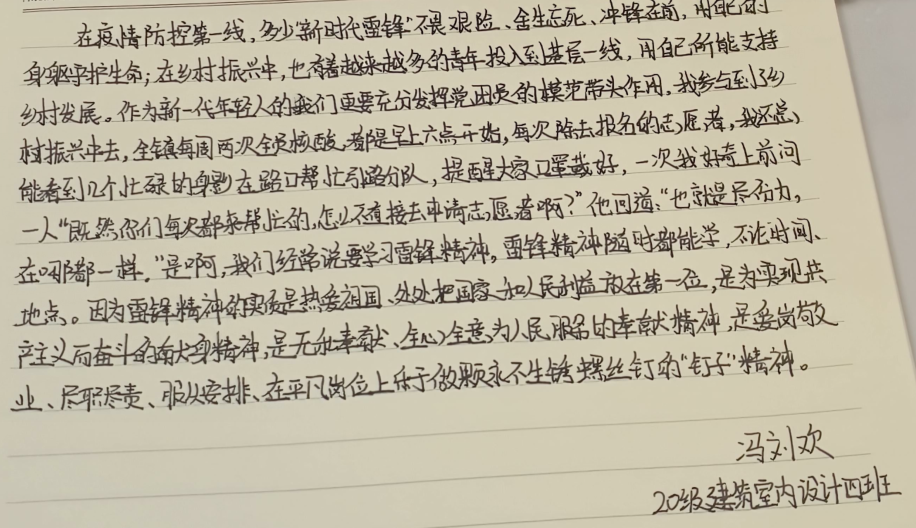 在疫情防控第一线，多少“新时代雷锋”不畏艰险、舍生忘死、冲锋在前，用自己的
身躯守护生命；在乡村振兴中，也有着越来越多的青年投入到基层一线，用自己所能支持
乡村发展。作为新一代年轻人的我们更要充分发挥党团员的模范带头作用，我参与到了乡
村振兴中去，全镇每周两次全员核酸，都是早上六点开始，每次除去报名的志愿者，我还总
能看到几个忙碌的身影在路口帮忙引路分队，提醒大家口罩戴好，一次我好奇上前问
一人“既然你们每次都来帮忙的，怎么不直接去申请志愿者啊？”他回道：“也就是尽份力，
在哪都一样。”是啊，我们经常说要学习雷锋精神，雷锋精神随时都能学，不论时间、
地点。因为雷锋精神的实质是热爱祖国、处处把国家和人民利益放在第一位，是为实现共
产主义而奋斗的献身精神，是无私奉献、全心全意为人民服务的奉献精神，是爱岗敬
业、尽职尽责、服从安排、在平凡岗位上乐于做颗永不生锈螺丝钉的“钉子”精神。
冯刘欢
20级建筑室内设计四班